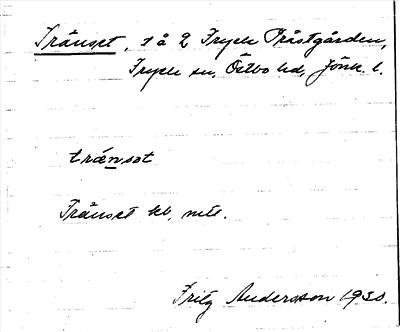 Tränset, s å 2 Tryck Prästgården,
Fryele sn, Östbo hd, Jönk. l.
tränsat
Tränset kb, mtl.
Fritz Andersson 1930.